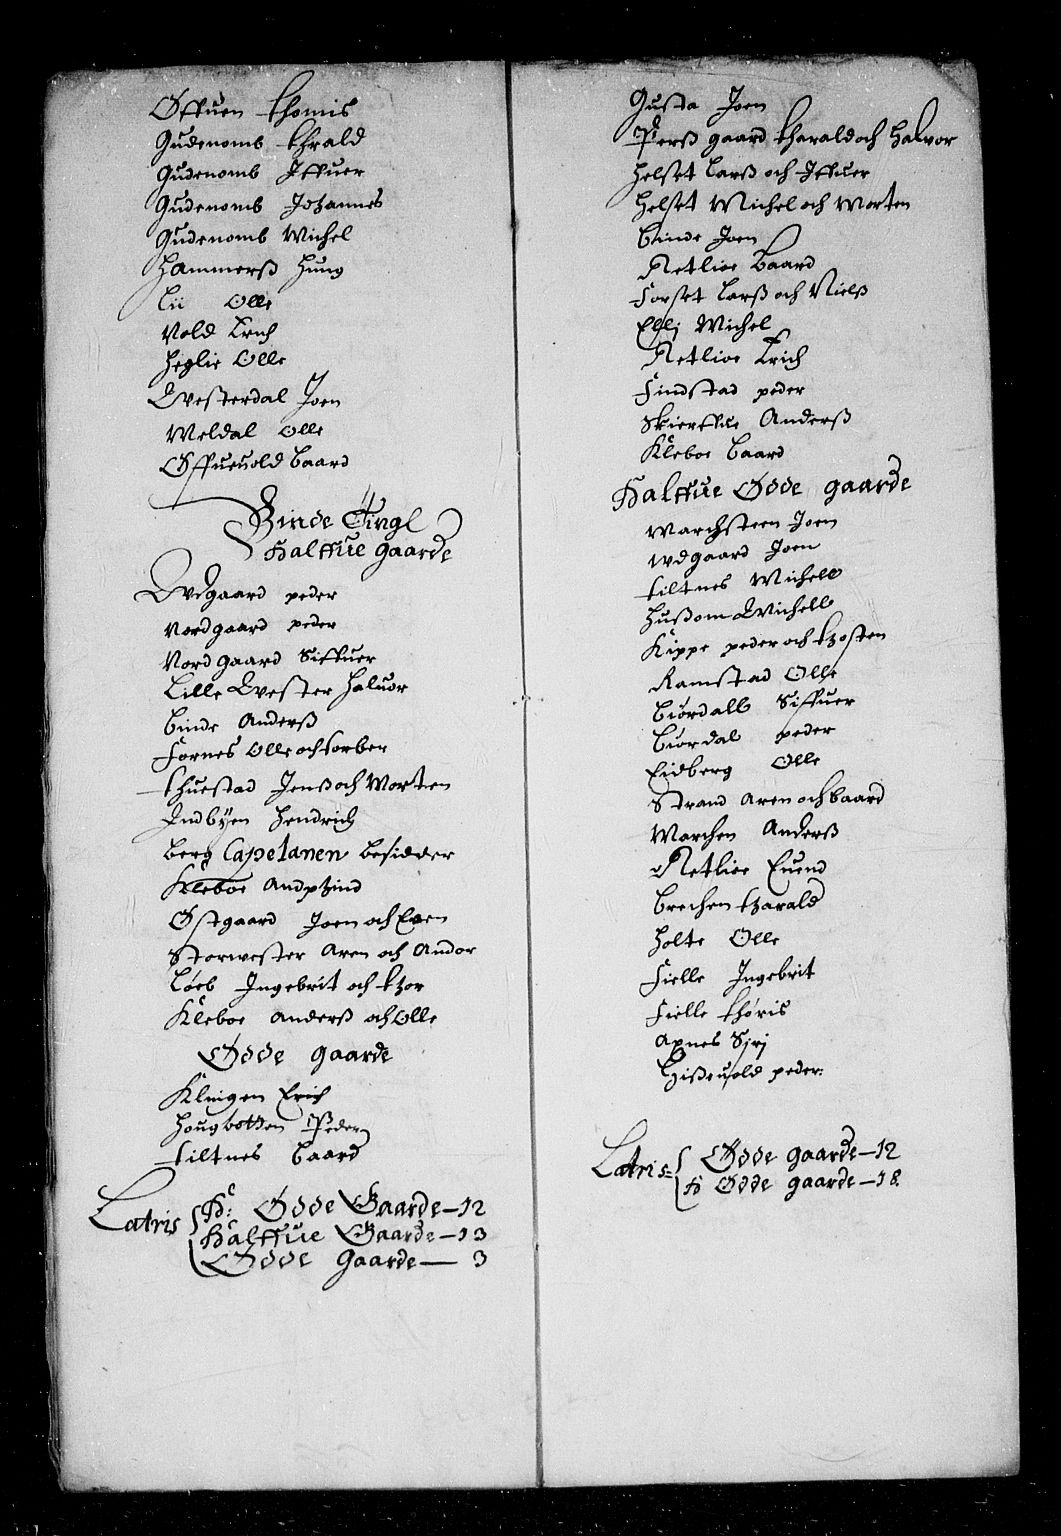 Øffuen thomis
Gudenomb thrald
Gudenomb Iffuer
Gudenomb Johannes
Gudenomb Michel
Hammerß Hung
Lii Olle
Vold Erich
Heglie Olle
Westerdal Joen
Meldal Olle
Øffueuold Baard
Binde Tingl
Halffue gaarde
Wdgaard peder
Nordgaard peder
Nordgaard Siffuer
Lille Wester Haluor
Binde Anderß
Fornes Olle och torber
thuestad Jenß och Morten
Indbÿen Hendrich
Berg Capelanen besidder
Kleboe Andphind
Østgaard Joen och Even
Storwester Aren och Andor
Løeb Ingebrit och thor
Kleboe Anderß och Olle
Ødde gaarde
Klingen Erich
Hougbotten Peder
tiltnes Baard
Latris fd: Ødde Gaarde—12
Halffue Gaarde—13
Ødde gaarde— 3
Gusta Joen
Perß gaard tharald och Halvor
Helset Larß och Iffuer
Helset Michel och Morten
Binde Joen
Netlioe Baard
Forset Larß och Nielß
Ellj Michel
Netlioe Erich
Findstad peder
Skierffue Anderß
Kleboe Baard
Halffue Ødde gaarde
Marchsteen Joen
Wdgaard Joen
tiltnes Michell
Hußom Michell
Kippe peder och thosten
Ramstad Olle
Biördall Siffuer
Biördal peder
Eidberg Olle
Strand Aren och Baard
Marchen Anderß
Netlioe Euend
Brechen tharald
Holte Olle
Fielle Ingebrit
Fielle thöris
Apnes Sirj
Hißeuold peder:
Latris= Ødde gaarde—12
fd Ødde gaarde—18.